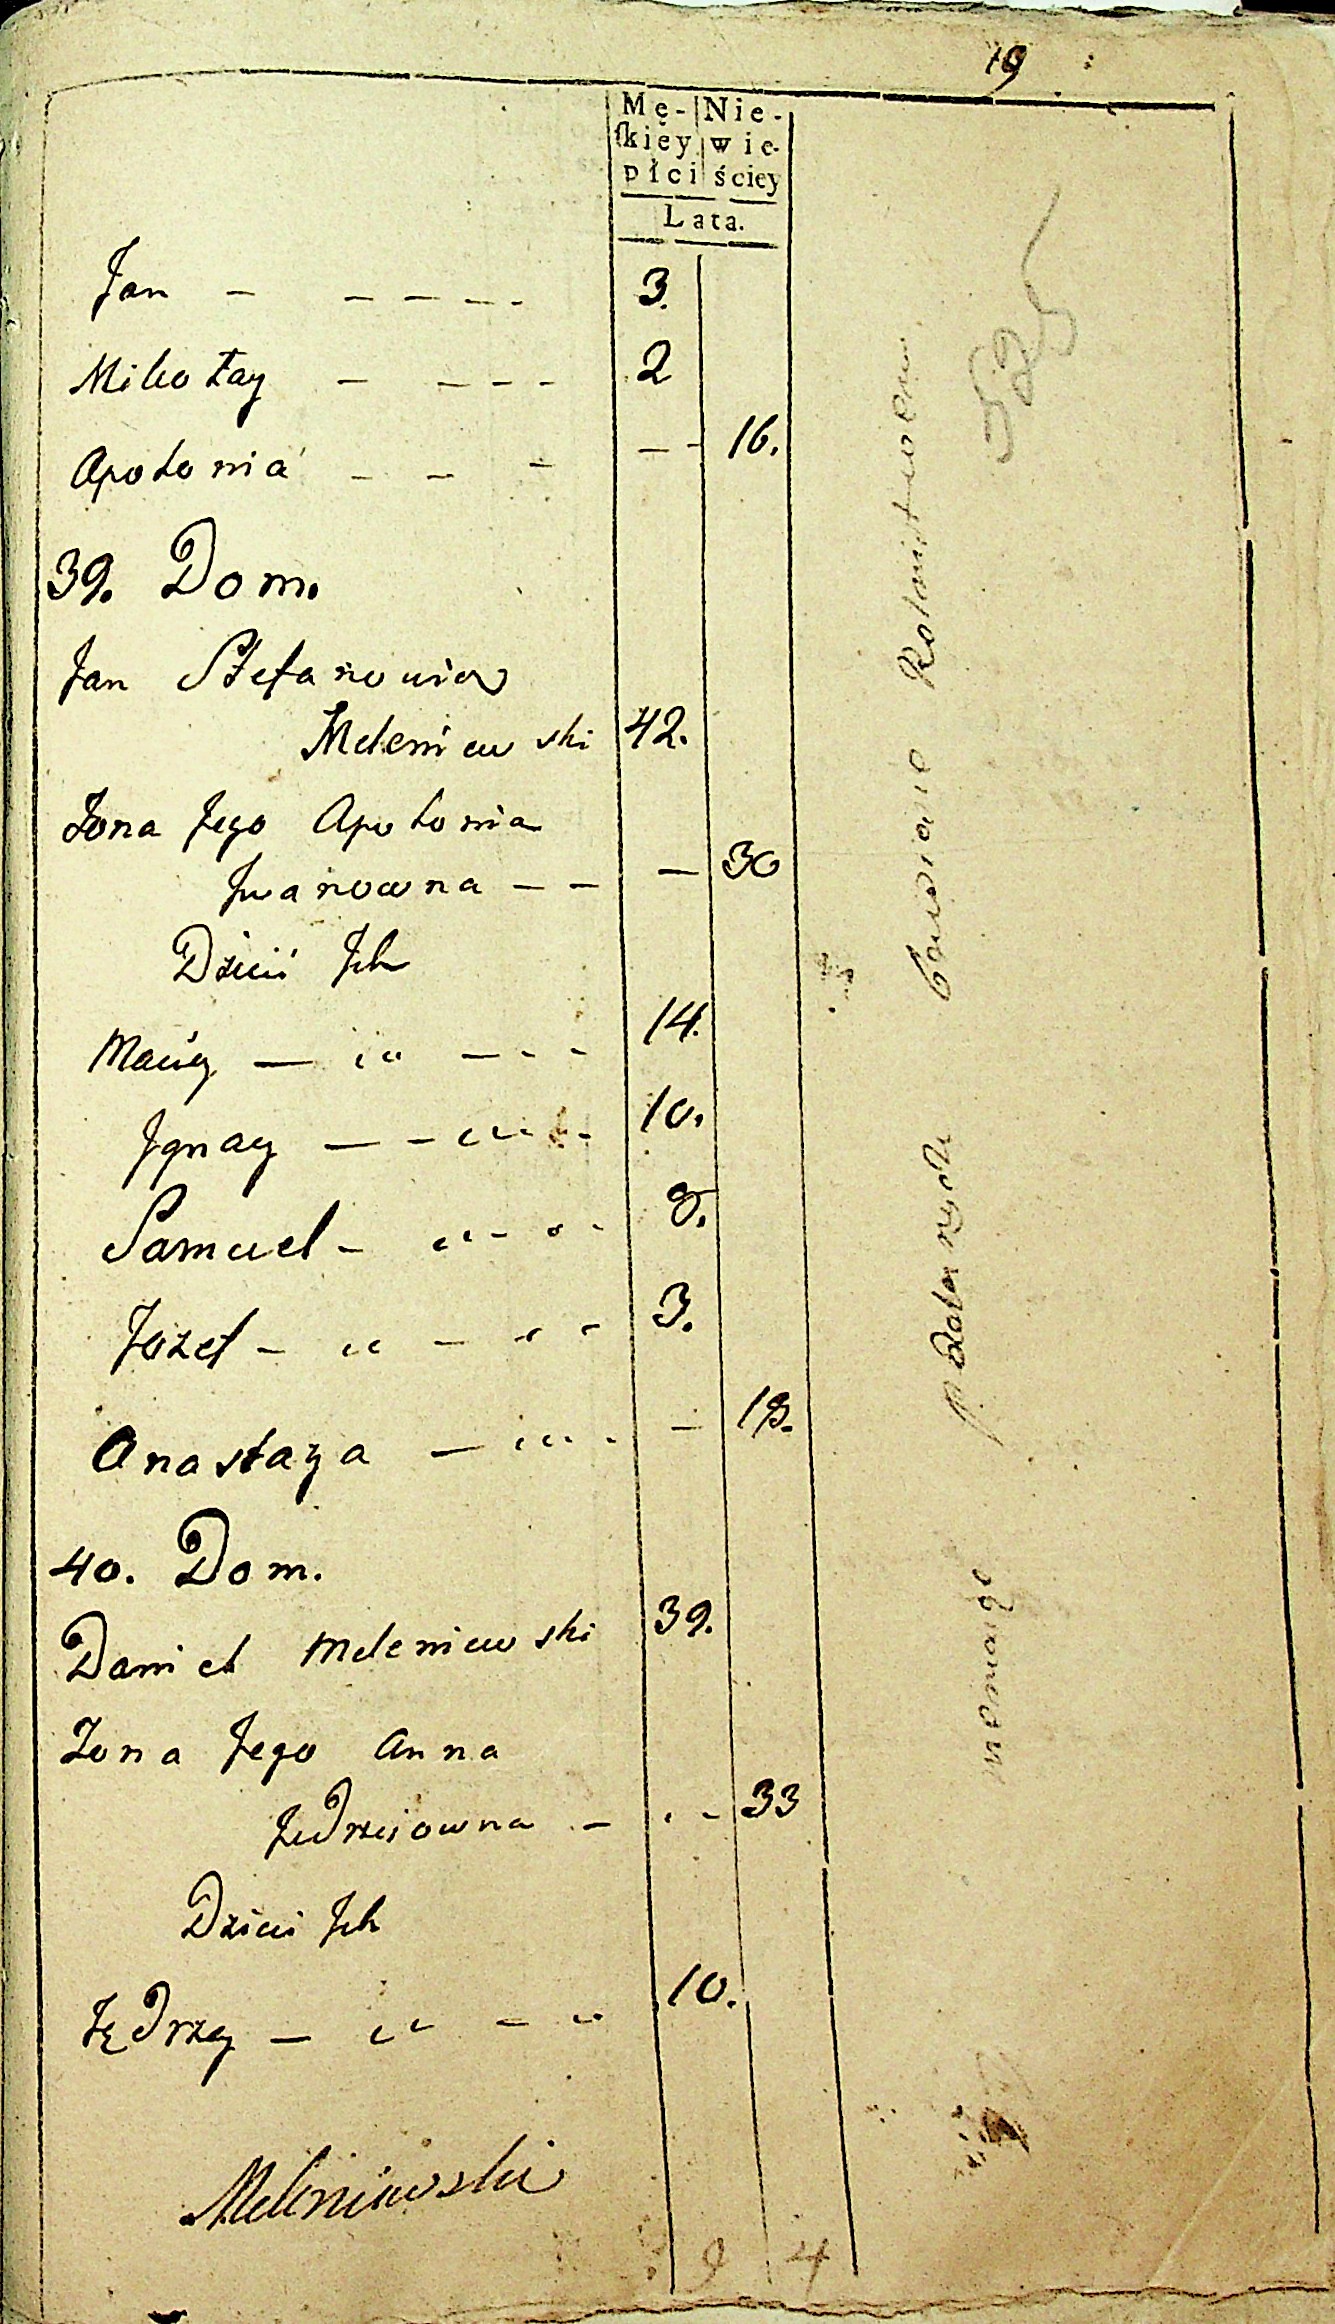 19
Mę- Nie-
ſkiey wie-
płci ściey
Lata.
Jan - - - - - - 3.
Mikołay - - - - 2
Apolonia - - - - - 16.
39. Dom.
Jan Stefanowicz
Meleniewski 42.
Żona Jego Apolonia
Jwanowna - - - 30
Dzieci Jch
Maciey - - - - - 14.
Jgnacy - - - - - 10.
Samuel - - - - - 8.
Jozef - - - - - 3.
Anastazya - - - - - 18.
40. Dom.
Daniel Meleniewski 39.
Zona Jego Anna
Jędrzeiowna - - - 33
Dzieci Jch
Jędrzey - - - - - 10.
Meleniewski
9 4
niemaiąc podatnych
525